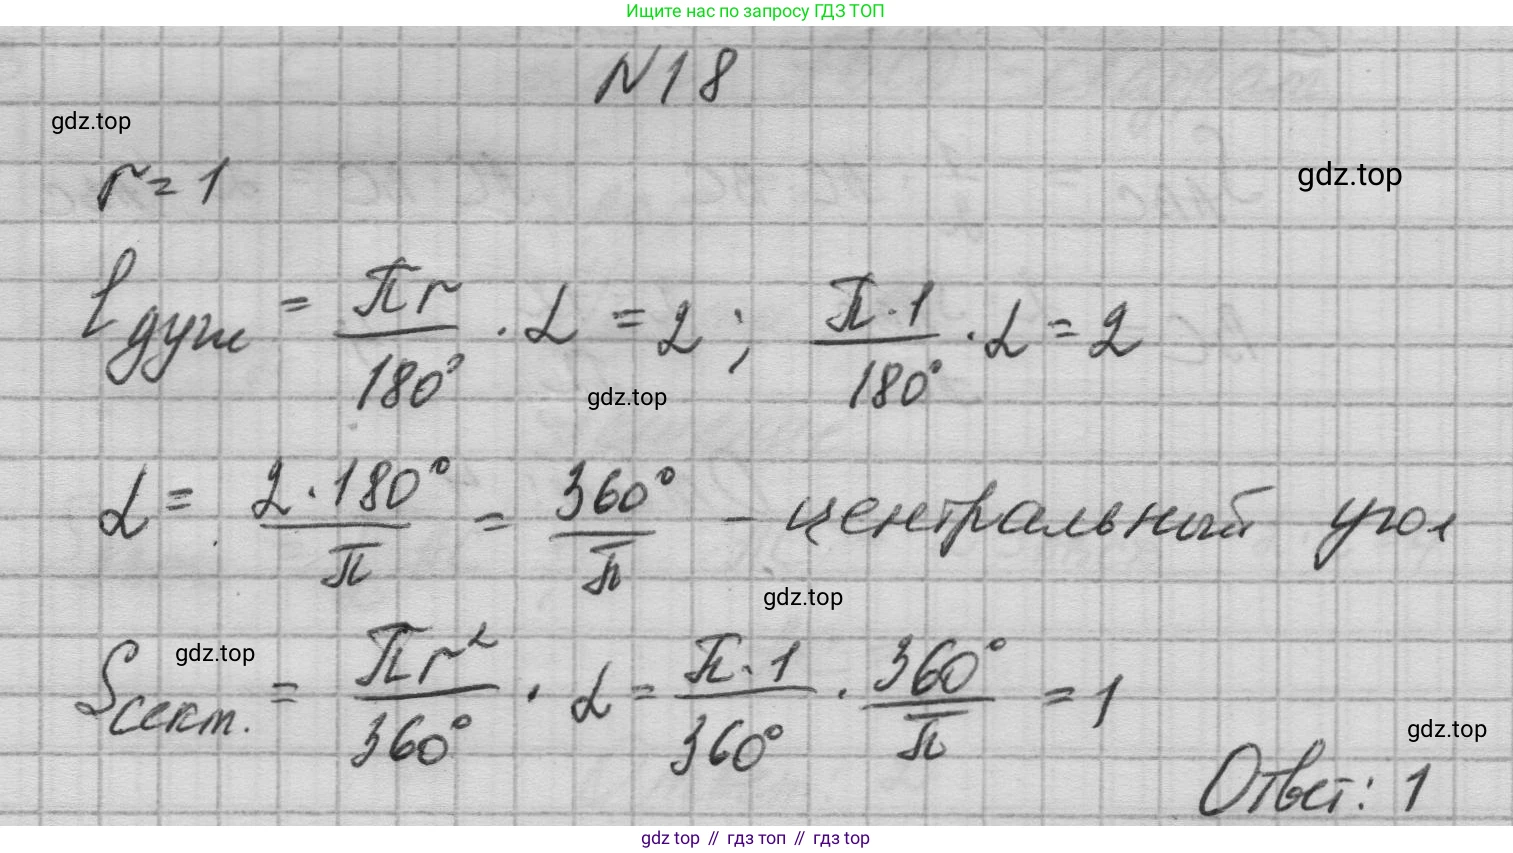 Ищите нас по запросу ГДЗ ТОП
N18
gdz.top
r = 1
gdz.top
l дуги = πr/180° · α = 2 ; π·1/180° · α = 2
gdz.top
α = 2·180°/π = 360°/π - центральный угол
gdz.top
gdz.top
S сект. = πr²/360° · α = π·1/360° · 360°/π = 1
gdz.top
Ответ: 1
gdz top // гдз топ // гдз top